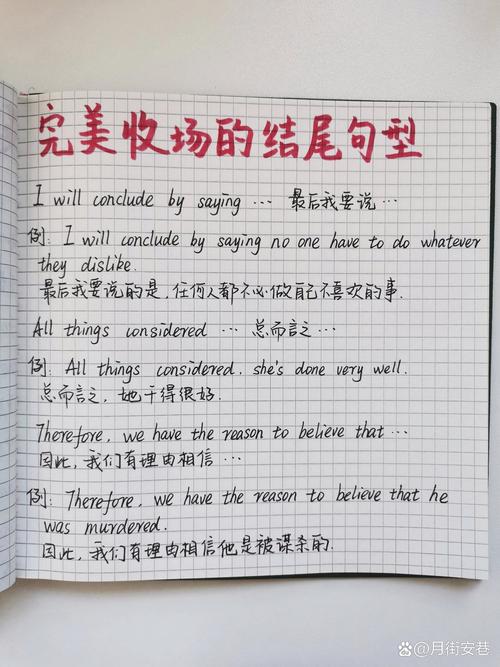 完美收场的结尾句型
I will conclude by saying … 最后我要说…
例: I will conclude by saying no one have to do whatever
they dislike.
最后我要说的是,任何人都不必做自己不喜欢的事.
All things considered … 总而言之…
例: All things considered. she's done very well.
总而言之, 她干得很好.
Therefore, we have the reason to believe that …
因此, 我们有理由相信…
例: Therefore, we have the reason to believe that he
was murdered.
因此, 我们有理由相信他是被谋杀的.
@月街安巷